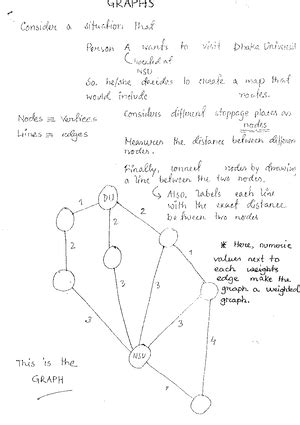 GRAPHS
Consider a situation that
Person A wants to visit Dhaka Universi
located at
NSU
So, he/she decides to create a map that
would include routes.
Nodes = Vertices
Lines = edges
Considers different stoppage places as
nodes
Measures the distance between different
nodes.
Finally, connect nodes by drawing
a line between the two nodes.
Also, labels each line
with the exact distance
between two nodes
DU
1
2
2
2
* Here, numeric
values next to
each weights
edge make the
graph a weighted
graph.
1
3
3
3
3
4
NSU
This is the
GRAPH